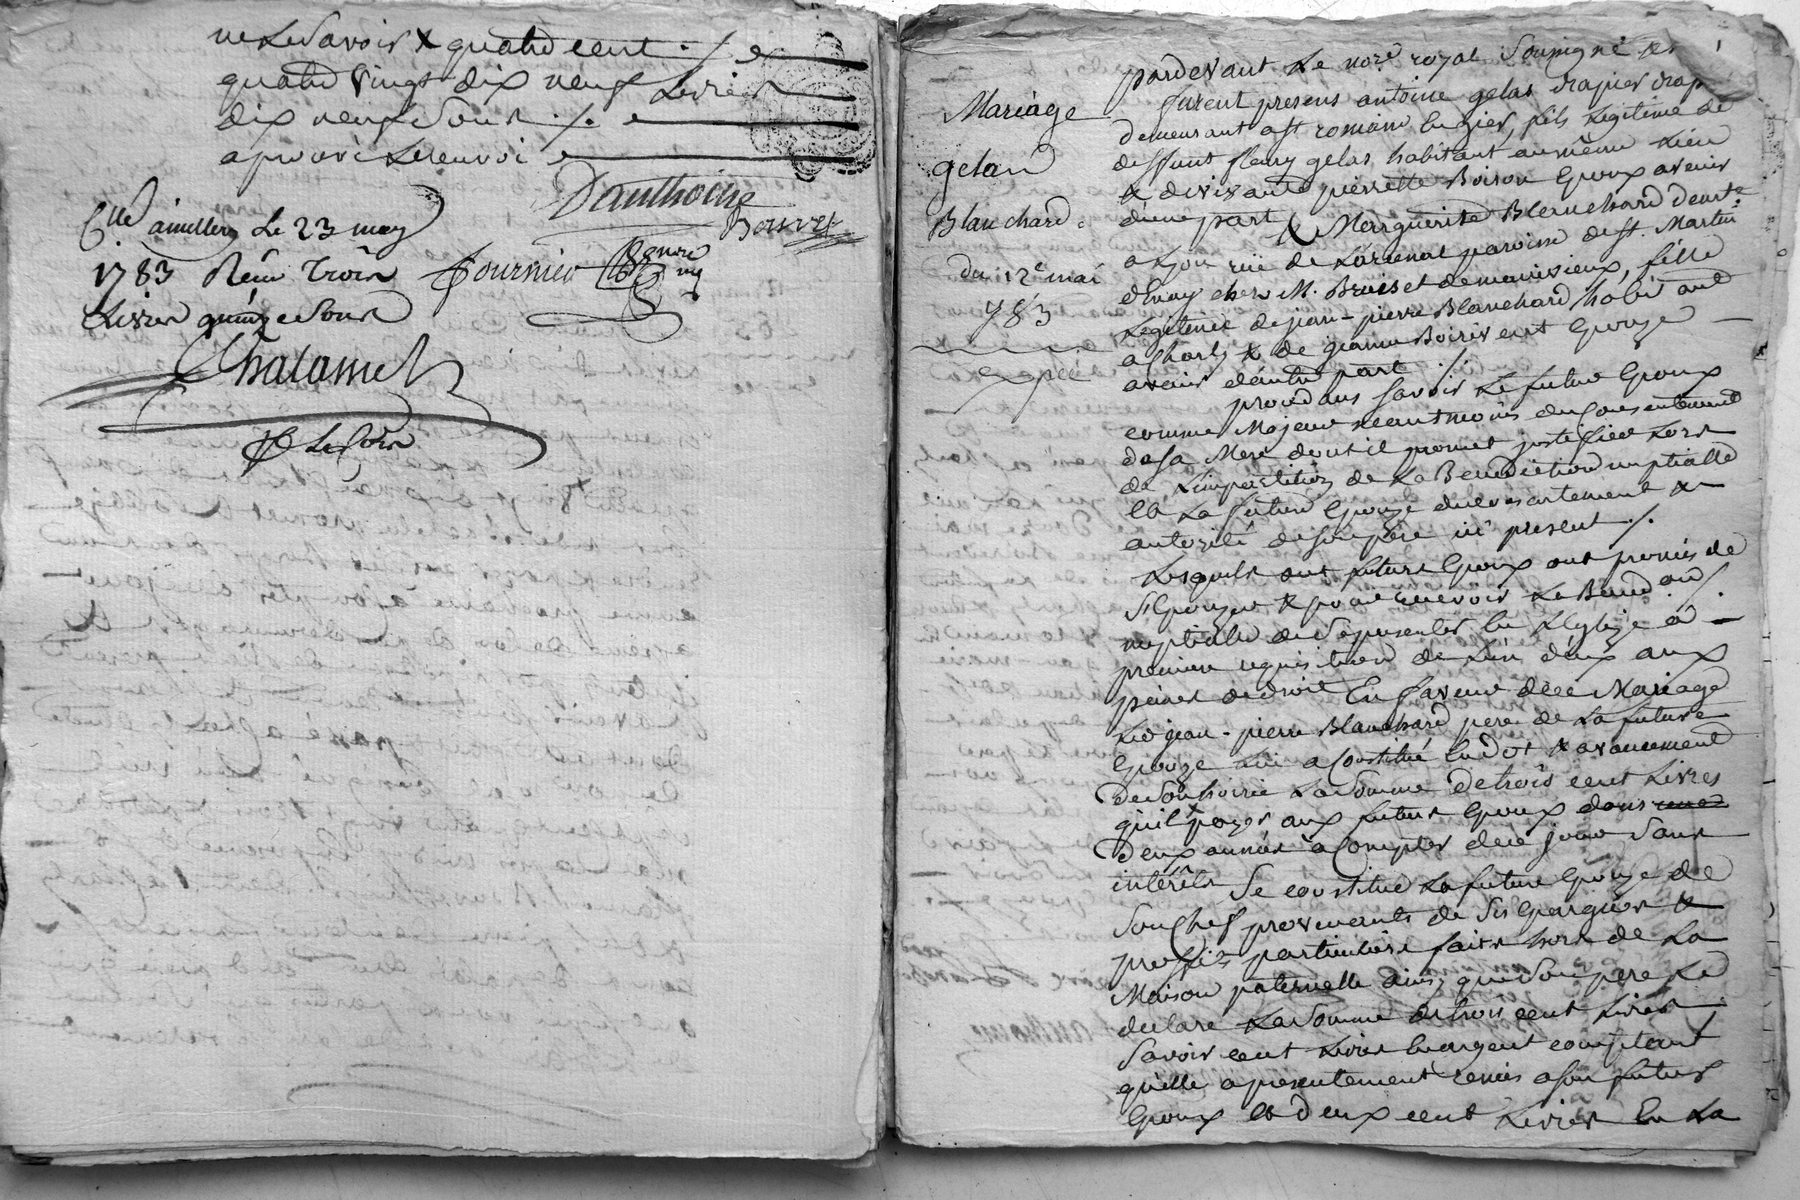 ne le savoir x quatre cent ./.
quatre vingt dix neuf Livres
dix neuf sous ./.
aprouvé le renvoi
Dauthoire
Bouvet
Cllé a milleri Le 23 may
1783 Reçu trois
Livres quinze sous
fournier
Chalamel
Mariage
gelas
Blanchard
du 12e mai
783
expéé
pardevant Le nore. royal soussigné &
furent presens antoine gelas drapier drap
demeurant a st romain en gier, fils Legitime de
deffunt fleury gelas habitant au même Lieu
& de vivante pierrette Boison Epoux avenir
d'une part & Marguerite Blanchard demte.
a Lyon rüe de L'arcenat paroisse de st. Martin
d'hinay chez M. Bruisset de manisieux, fille
Legitime de jean-pierre Blanchard habitant
a Charly & de jeanne Boirivent Epouze
avenir d'autre part ./.
procedans savoir Le futur Epoux
comme Majeur neantmoins du Consentement
de sa Mere dont il promet justifier Lors
de L'impartition de La Benediction nuptialle
et La future Epouze du consentement &
autorité de son pere ici present ./.
Lesquels dits futurs Epoux ont promis de
s'Epouzer & pour recevoir La Bened.on
nuptialle de se presenter En L'Eglize a
premiere requisition de L'un d'eux aux
peines de droit En faveur de ce Mariage
Led jean-pierre Blanchard pere de La future
Epouze lui a Constitué En dot & avancement
de son hoirie La somme de trois cent Livres
qu'il x payer aux futurs Epoux dans
deux années a Compter de ce jour sans
intérêts Se constitue La future Epouze de
son Chef provenants de ses Epargnes &
proffits particuliers faits hors de La
Maison paternelle ainsy que son pere Le
declare La somme de trois cent Livres
savoir cent Livres En argent comptant
qu'elle a presentement remis a son futur
Epoux et deux cent Livres En La